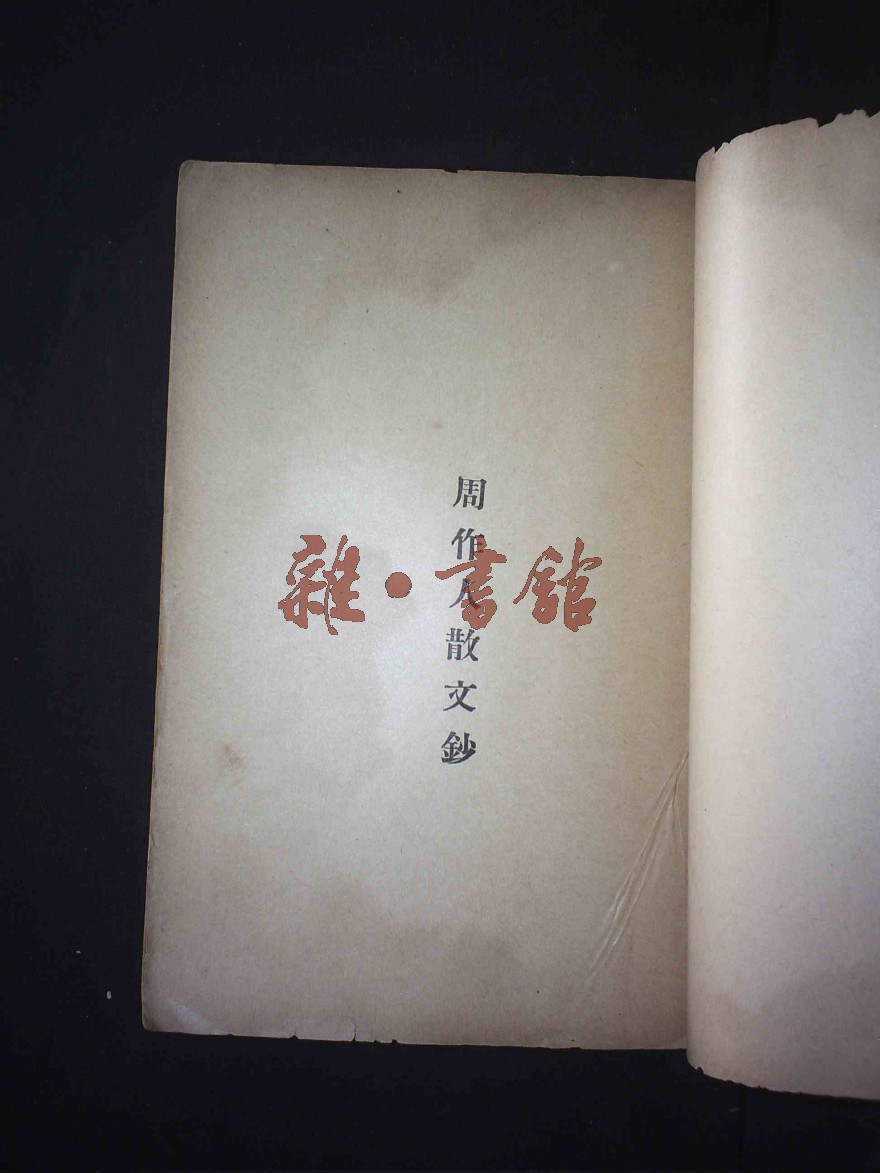 周作人散文鈔
雜·書館